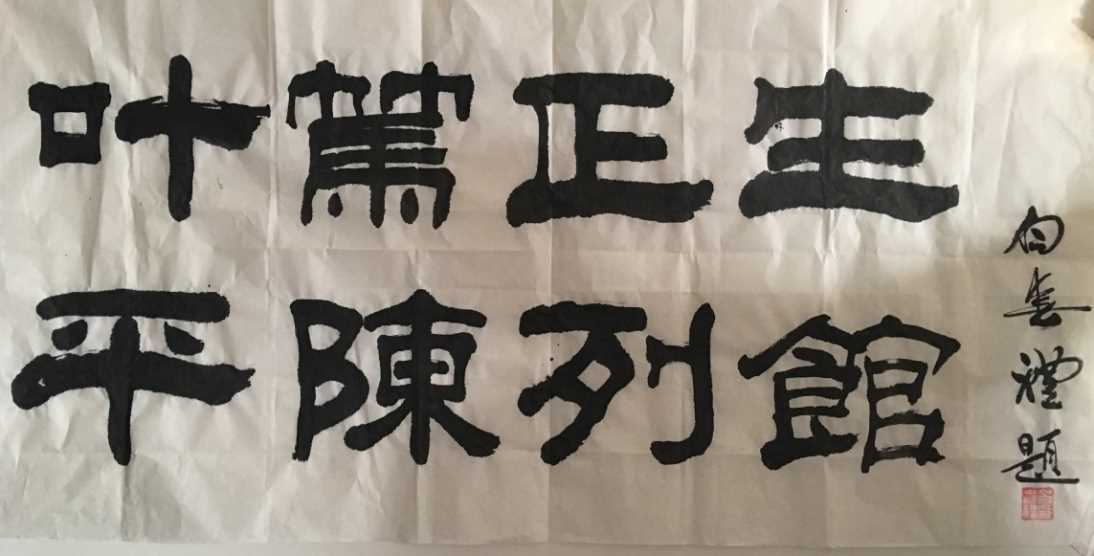 叶篤正生
平陳列館
白春禮題